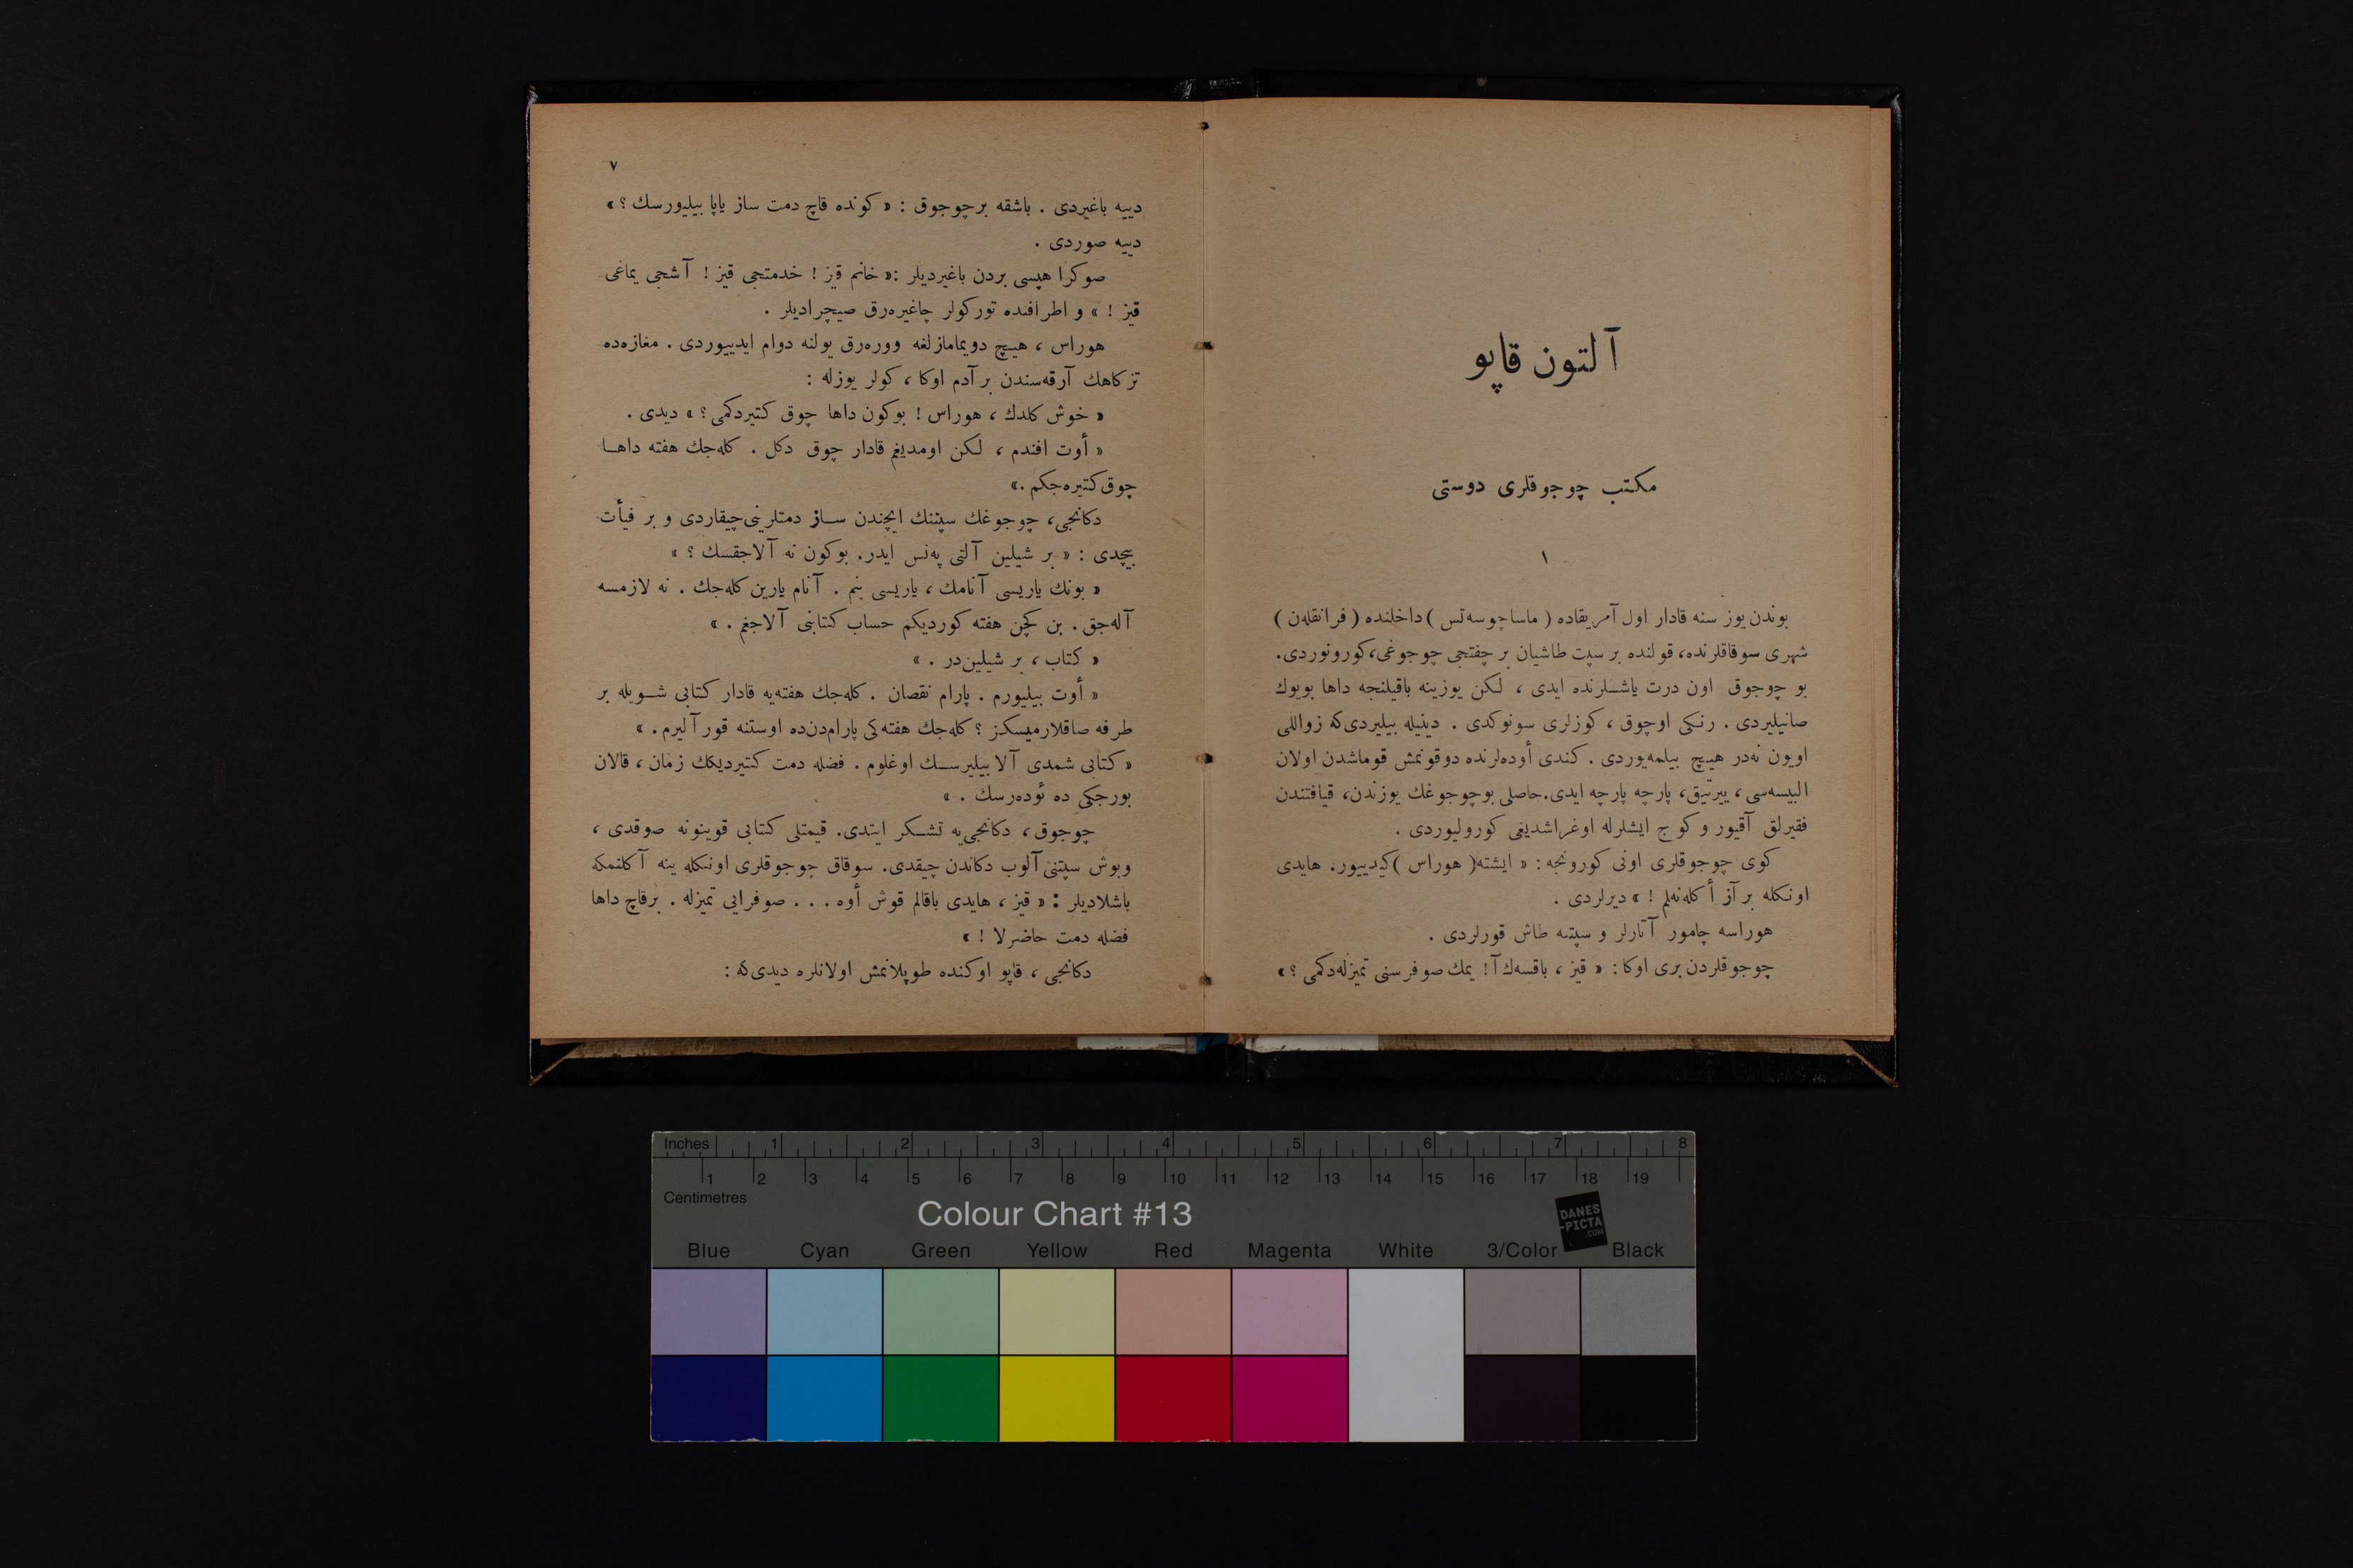 آلتون قاپو
مكتب چوجوقلری دوستی
١
بوندن يوز سنه قادار اول آمريقاده ( ماساچوسه‌تس ) داخلنده ( فرانقلەن )
شهری سوقاقلرنده، قولنده بر سپت طاشيان بر چفتجی چوجوغی، كورونوردی.
بو چوجوق اون درت ياشلرنده ايدی ، لكن يوزينه باقيلنجه داها بويوك
صانيليردی . رنكی اوچوق ، كوزلری سونوكدی . دينيله بيليردی‌كه زواللی
اويون نه‌در هيچ بيلمه‌يوردی . كندی أوده‌لرنده دوقونمش قوماشدن اولان
البيسه‌سی ، ييرتيق، پارچه پارچه ايدی. حاصلی بوچوجوغك يوزندن، قيافتندن
فقيرلق آقيور و كوج ايشلرله اوغراشديغی كوروليوردی .
كوی چوجوقلری اونی كورونجه : « ايشته ( هوراس ) كيدييور. هايدی
اونكله بر آز أكله‌نه‌لم ! » ديرلردی .
هوراسه چامور آتارلر و سپتنه طاش قورلردی .
چوجوقلردن بری اوكا : « قيز ، باقسه‌ك آ ! يمك صوفرسنی تميزله‌دكمی ؟ »
٧
دييه باغيردی . باشقه برچوجوق : « كونده قاچ دمت ساز ياپا بيليورسك ؟ »
دييه صوردی .
صوكرا هپسی بردن باغيرديلر : « خانم قيز ! خدمتجی قيز ! آشجی يماغی
قيز ! » و اطرافنده توركولر چاغيره‌رق صيچراديلر .
هوراس ، هيچ دويمامازلغه ووره‌رق يولنه دوام ايدييوردی . مغازه‌ده
تزكاهك آرقه‌سندن بر آدم اوكا ، كولر يوزله :
« خوش كلدك ، هوراس ! بوكون داها چوق كتيردكمی ؟ » ديدی .
« أوت افندم ، لكن اومديغم قادار چوق دكل . كله‌جك هفته داها
چوق كتيره‌جكم .»
دكانجی، چوجوغك سپتنك ايچندن ساز دمتلرينی چيقاردی و بر فيأت
بيچدی : « بر شيلين آلتی په‌نس ايدر. بوكون نه آلاجقسك ؟ »
« بونك ياريسی آنامك ، ياريسی بنم . آنام يارين كله‌جك . نه لازمسه
آله‌جق . بن كچن هفته كورديكم حساب كتابنی آلاجغم . »
« كتاب ، بر شيلين‌در . »
« أوت بيليورم . پارام نقصان . كله‌جك هفته‌يه قادار كتابی شويله بر
طرفه صاقلارميسكز ؟ كله‌جك هفته‌كی پارام‌دن‌ده اوستنه قور آليرم . »
« كتابی شمدی آلا بيليرسك اوغلوم . فضله دمت كتيرديكك زمان ، قالان
بورجكی ده ئوده‌رسك . »
چوجوق ، دكانجی‌يه تشكر ايتدی. قيمتلی كتابی قوينونه صوقدی ،
وبوش سپتنی آلوب دكاندن چيقدی. سوقاق چوجوقلری اونكله ينه آكلنمكه
باشلاديلر : « قيز ، هايدی باقالم قوش أوه . . . صوفرايی تميزله . برقاچ داها
فضله دمت حاضرلا ! »
دكانجی ، قاپو اوكنده طوپلانمش اولانلره ديدی‌كه :
Inches 1 2 3 4 5 6 7 8
1 2 3 4 5 6 7 8 9 10 11 12 13 14 15 16 17 18 19
Centimetres
Colour Chart #13
DANES
-PICTA
.COM
Blue Cyan Green Yellow Red Magenta White 3/Color Black